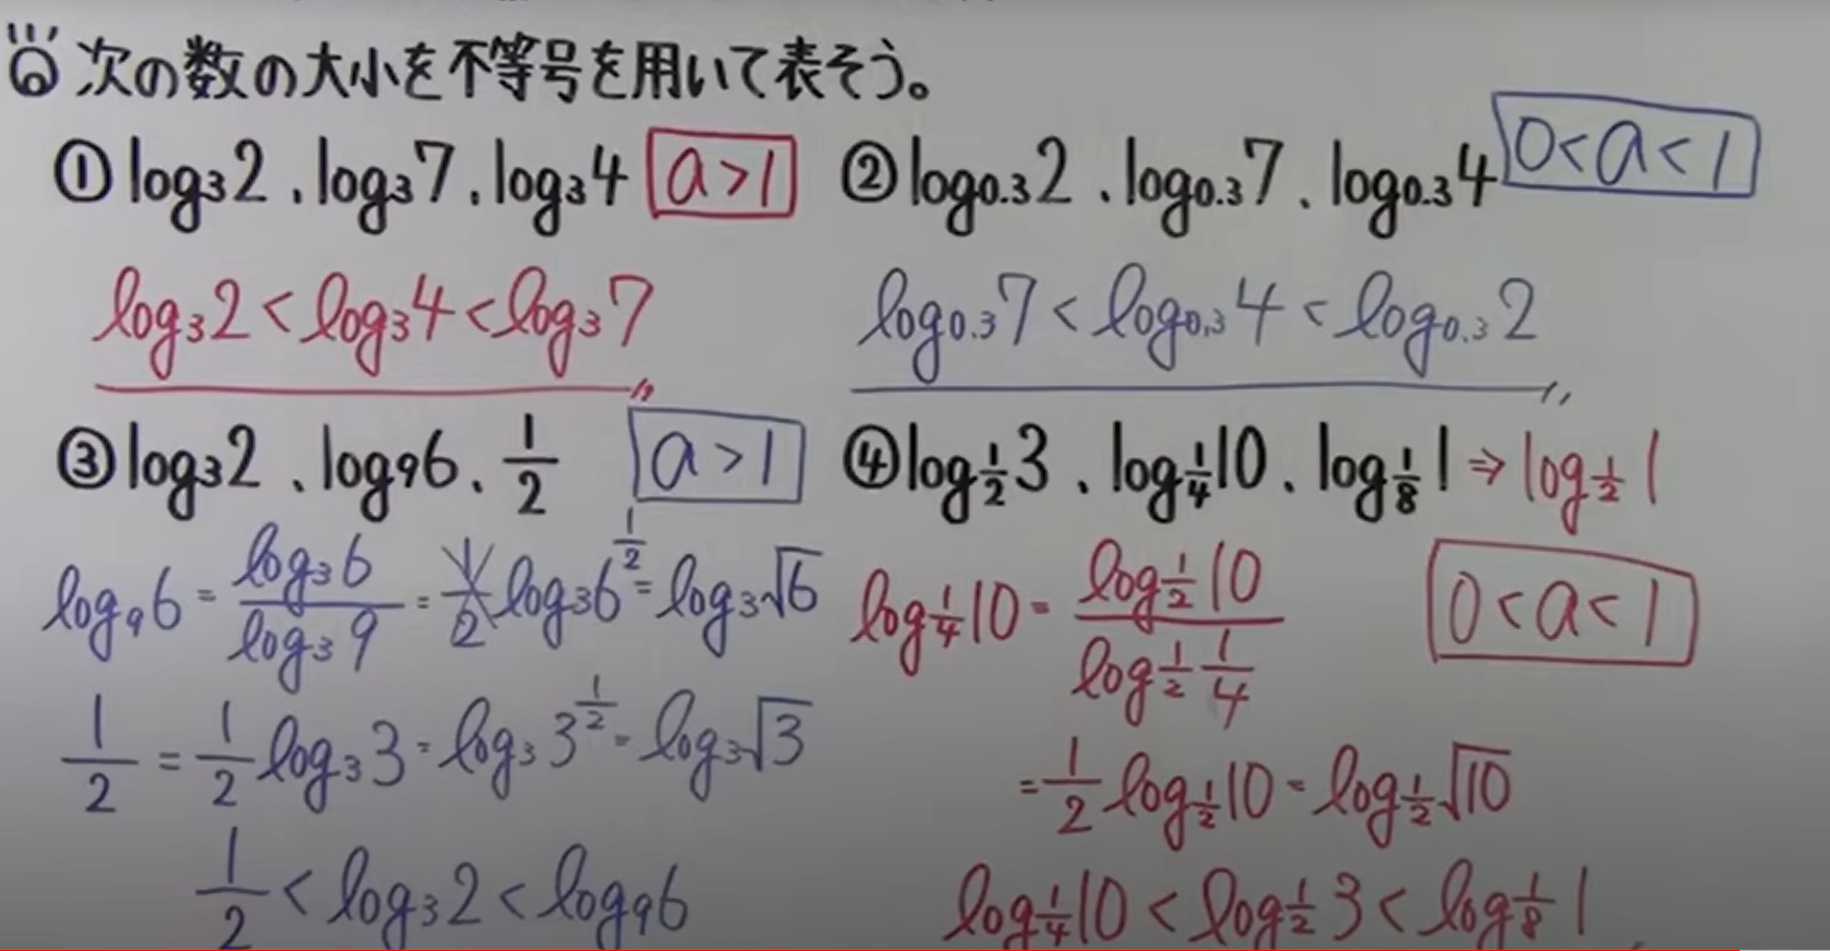 Q 次の数の大小を不等号を用いて表そう。
① log₃2 、log₃7 、log₃4 a>1
log₃2 < log₃4 < log₃7
② log₀.₃2 、log₀.₃7 、log₀.₃4 0<a<1
log₀.₃7 < log₀.₃4 < log₀.₃2
③ log₃2 、log₉6 、1/2 a>1
log₉6 = log₃6/log₃9 = 1/2 log₃6^(1/2) = log₃√6
1/2 = 1/2 log₃3 = log₃3^(1/2) = log₃√3
1/2 < log₃2 < log₉6
④ log_(1/2) 3 、log_(1/4) 10 、log_(1/8) 1 ⇒ log_(1/2) 1
0<a<1
log_(1/4) 10 = log_(1/2) 10 / log_(1/2) 1/4
= 1/2 log_(1/2) 10 = log_(1/2) √10
log_(1/4) 10 < log_(1/2) 3 < log_(1/8) 1